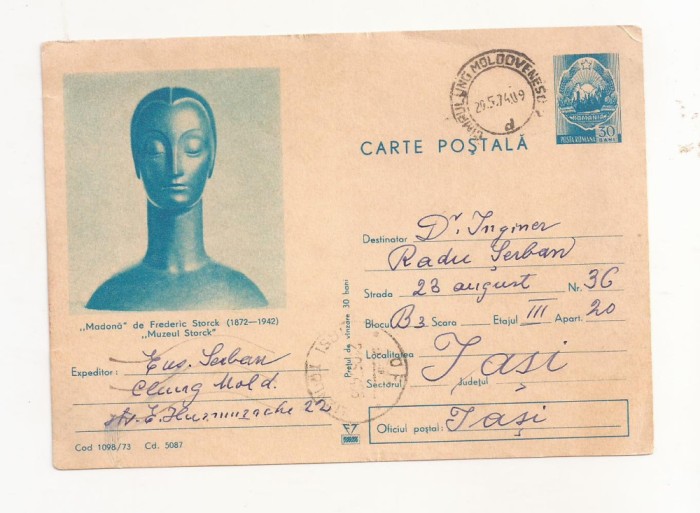 CÎMPULUNG MOLDOVENESC
29.5.74.09
d
ROMÂNIA
POSTA ROMANA 30 BANI
CARTE POȘTALĂ
Destinatar Dr. Inginer
Radu Șerban
Strada 23 august Nr. 36
Blocu B3 Scara Etajul III Apart. 20
Localitatea Iași
Sectorul Județul
Oficiul poștal: Iași
„Madonă" de Frederic Storck (1872—1942)
„Muzeul Storck"
Expeditor: Eug. Șerban
Clung Mold.
str. E. Hurmuzache 22
Prețul de vînzare 30 bani
Cod 1098/73 Cd. 5087